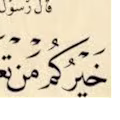 قال رسول
خَيْرُكُمْ مَنْ تَعَ